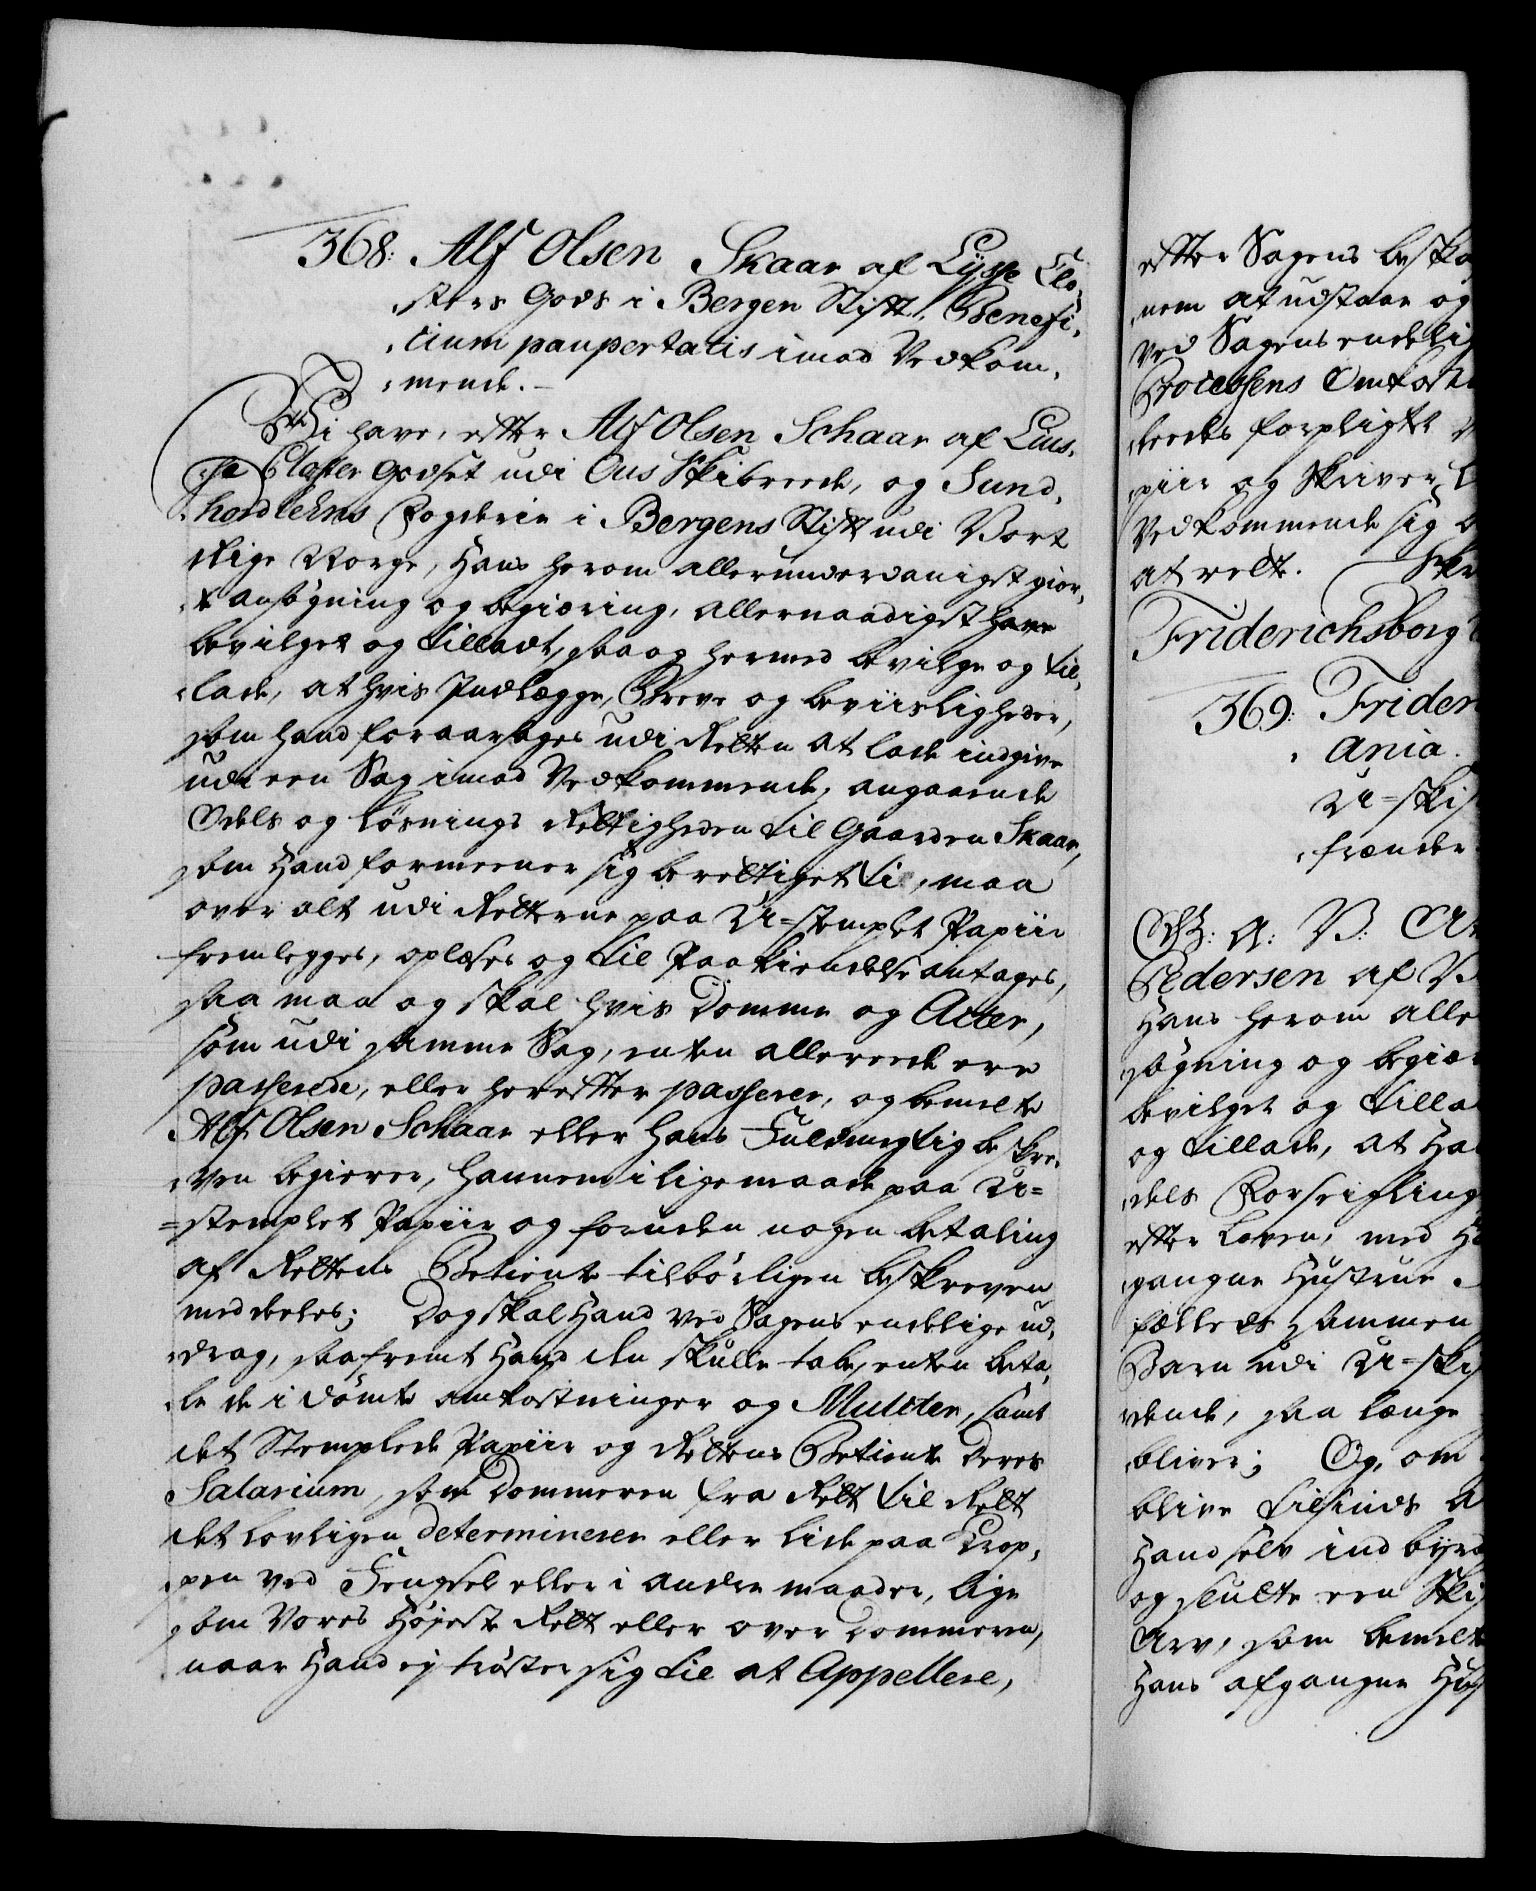 368: Alf Olsen Skaar af Lysse Clo-
sters Gods i Bergen Stift, Benefi-
cium paupertatis imod Vedkom-
mende.
Wi have, efter Alf Olsen Schaar af Lius-
se Closter Godset udi Ous Skibreede, og Sund-
hordlehns Fogderie i Bergens Stift udi Vort
Rige Norge, Hans herom allerunderdanigst gior-
te ansøgning og begiæring, allernaadigst have
bevilget og tilladt, saa og hermed bevilge og til-
lade, at hvis Indlægge, Breve og beviisligheder,
som hand foraarsages udi Retten at lade indgive
udi een Sag imod Vedkommende, angaaende
Odels og løsnings Rettigheden til Gaarden Skaar,
som Hand formeener sig berettiget til, maa
over alt udi Retterne paa U-stemplet Papiir
fremlegges, oplæses og til Paakiendelse antages,
saa maa og skal hvis Domme og Acter,
som udi samme Sag, enten allereede ere
passerede, eller herefter passerer, og bemelte
Alf Olsen Schaar eller hans Fuldmegtig beskre-
ven begierer, hannem i ligemaade paa U-
stemplet Papiir og foruden nogen betaling
af Rettens Betiente tilbørligen beskreven
meddeeles; Dog skal Hand ved Sagens endelige ud-
drag, saafremt Hand den skulle tabe, enten beta-
le de idømte omkostninger og Mulcter, samt
det Stemplede Papiir og Rettens Betiente Deres
Salarium, som Dommeren fra Rett til Rett
det lovligen determinerer eller lide paa Crop-
pen ved Fengsel eller i andre maader, lige
som Vores Højeste Rett eller over Dommeren,
naar Hand ej trøster sig til at Appellere,
efter Sagens beska
nem at udstaae og
ved Sagens endelig
Processens Omkost
leedes forpligte
piir og Skriver
Vedkommende sig
at rett.
Friderichsborg
369: Frider
ania.
U-ski
frænder
C: A: V:
Pedersen af
Hans herom alle
søgning og begiæ
bevilget og tilla
og tillade, at Ha
dels Forseigling
efter loven, med H
gangne Hustrue
fælleds sammen
Barn udi U-ski
dende, saa længe
bliver; Og, om
blive tilsinds
Hand selv indbyrd
og slutte een Ski
Arv, som bemelt
Hans afgangne Hus